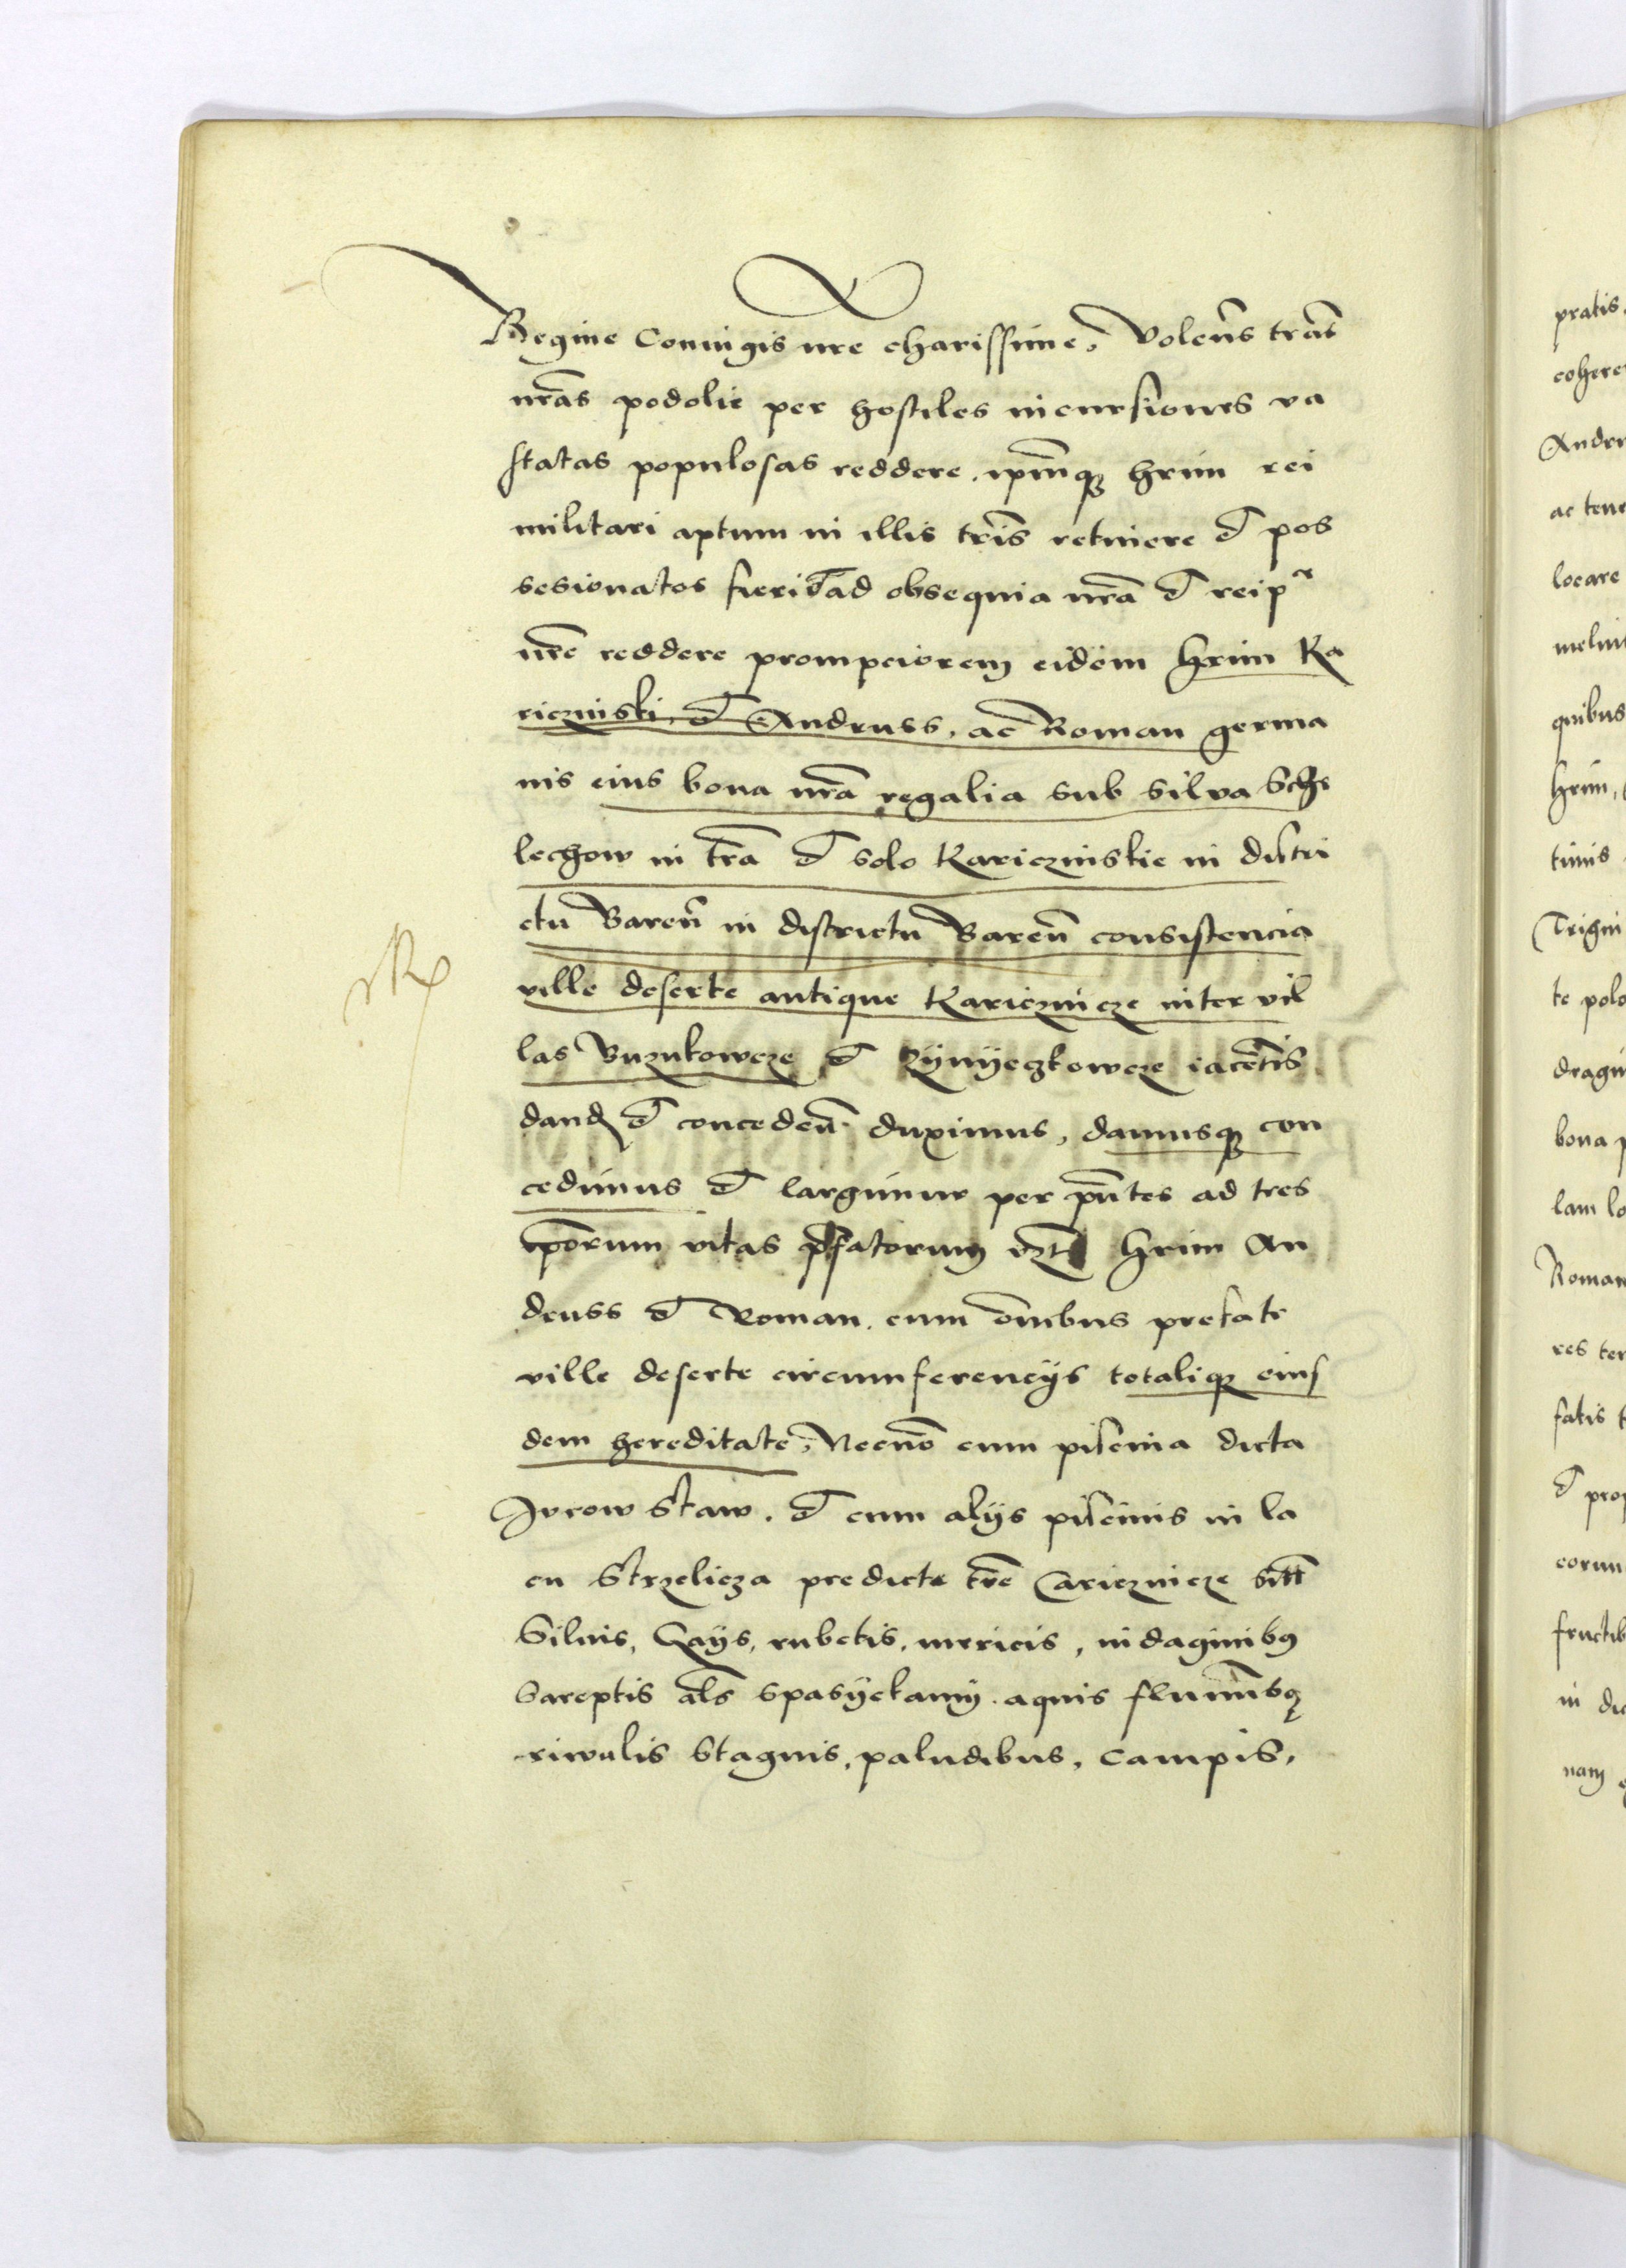 Regine Coniugis nre charissime, Volens tras
nras podolie per hostiles incursiones va
statas populosas reddere, ipmq hrim rei
militari aptum in illis tris retinere et pos
sesionatos fieri et ad obsequia nra et reip
nre reddere prompciorem eidem hrim Ka
riczniski, et Andruss, ac Roman germa
nis eius bona nra regalia sub silva Sche
lechow in tra et solo Kariczniskie in distri
ctu Baren in districtu Baren consistencia
ville deserte antique Karicznicze inter vil
las Buzukowcze et Rynyeczkowcze iacentis
dand et conceden duximus, damusq con
cedimus et largimur per pntes ad tres
ipsorum vitas pfatorum hrim An
druss et Roman. cum omibus prefate
ville deserte circumferencys totaliq eius
dem hereditate, Necno cum piscina dicta
Jurow Staw. et cum alys piscinis in la
cu Strzelicza predicte tre Caricznicze sitt
Siluis, Gays, rubetis, mericis, indaginibq
Sareptis als Spasyekamy. aquis fluminibsq
riwulis Stagnis, paludibus, campis,
pratis
cohere
Andru
ac tene
locare
quibus
hrim,
timis
Trigin
te polo
dragin
bona p
lam lo
Roman
res ter
fatis t
et prop
eorum
fructib
in dic
nam